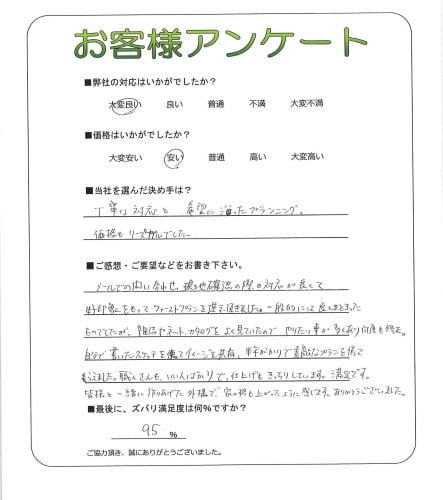 お客様アンケート
■弊社の対応はいかがでしたか?
大変良い 良い 普通 不満 大変不満
■価格はいかがでしたか?
大変安い 安い 普通 高い 大変高い
■当社を選んだ決め手は?
丁寧な対応と 希望に沿ったプランニング。
価格もリーズナブルでした。
■ご感想・ご要望などをお書き下さい。
メールでの問い合わせ、現地確認の際の対応が良くて
好印象をもってファーストプランを提示頂きました。一般的には良くまとまった
ものでしたが、雑誌やネット、カタログをよく見ていたので やりたい事が多くあり何度も修正。
自分で書いたスケッチを使てイメージを共有、半年がかりで素敵なプランを作って
もらえました。職人さんも、いい人ばかりで、仕上げもきっちりしています。満足です。
皆様と一緒に作りあげた外構で、家の格も上がったように感じます。ありがとうございました。
■最後に、ズバリ満足度は何%ですか?
95 %
ご協力頂き、誠にありがとうございました。